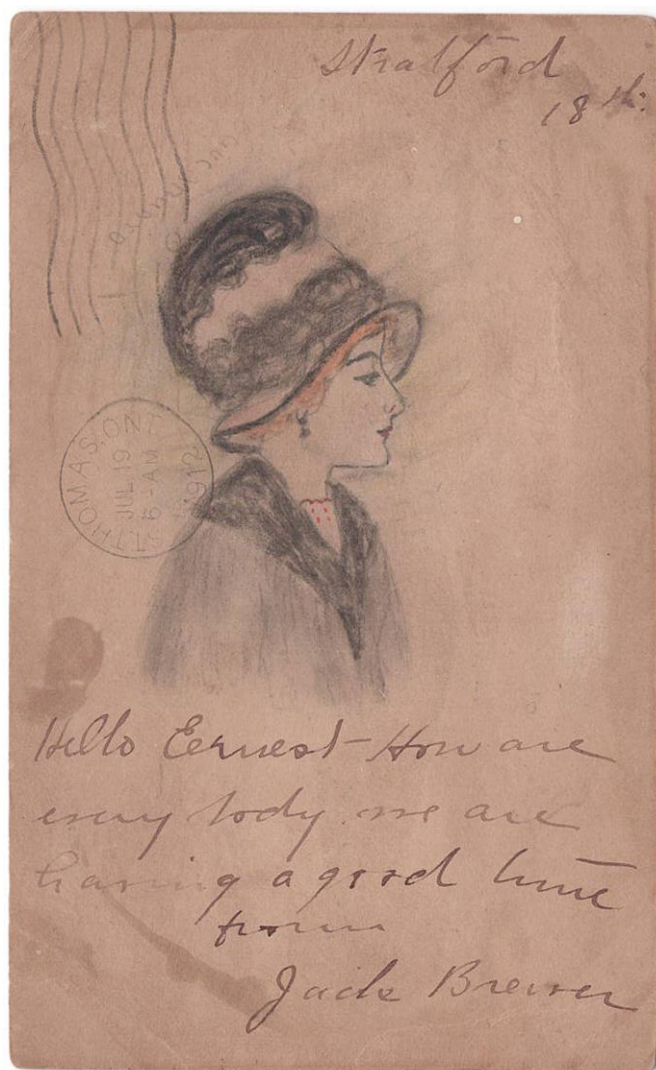 Stratford
18th
ST. THOMAS, ONT
JUL 19
6-AM
1912
Hello Eernest - How are
every body we are
having a good time
from
Jack Brewer